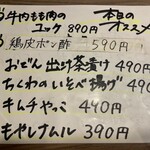 本日の
オススメ
牛内もも肉の
ユッケ 890円
鶏皮ポン酢 590円
おでん出汁茶漬け 490円
ちくわのいそべ揚げ 490円
キムチやっこ 490円
もやしナムル 390円